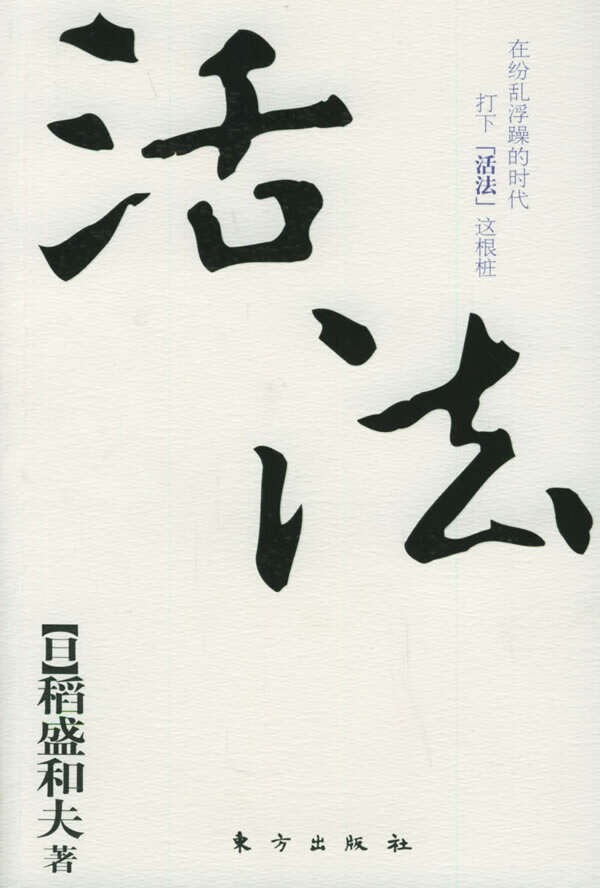 活法
在纷乱浮躁的时代
打下「活法」这根桩
【日】稻盛和夫 著
東方出版社